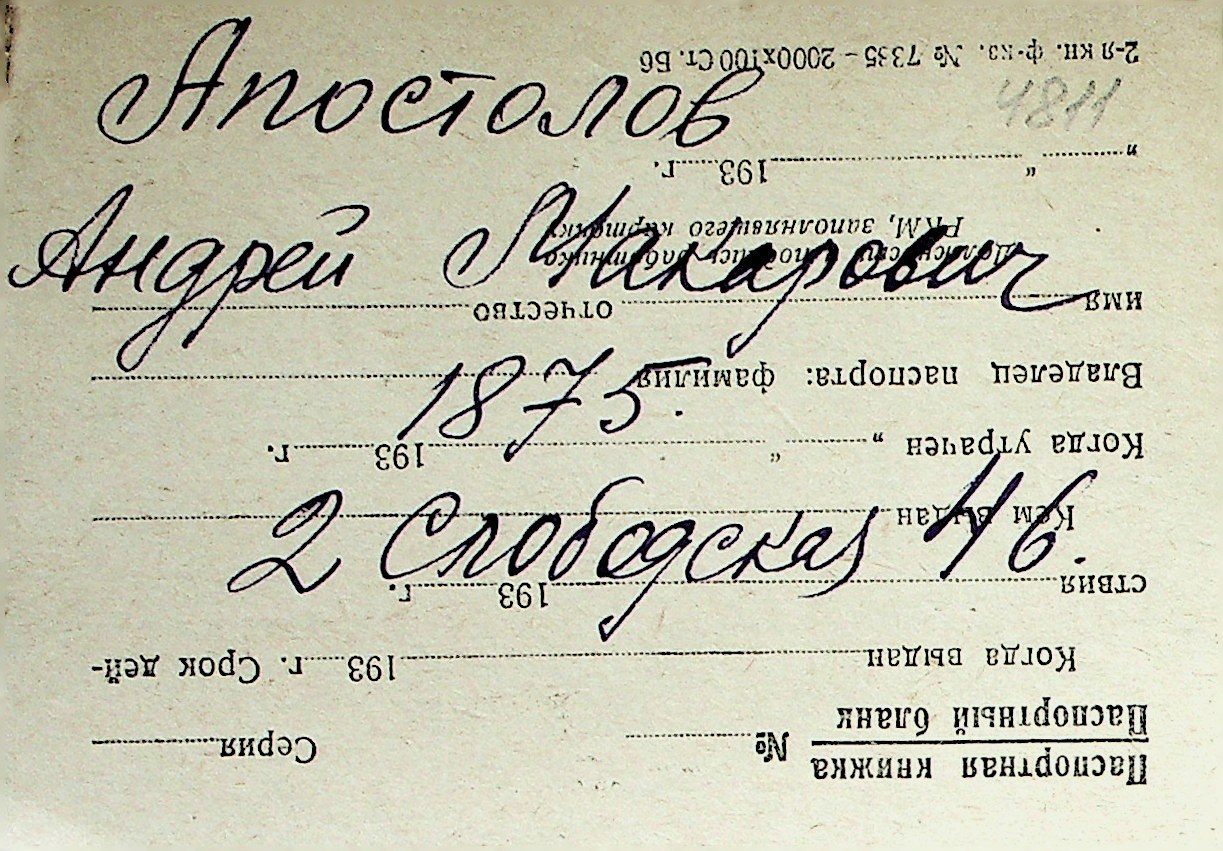 Апостолов
Андрей Макарович
1875.
2 Слободская 46.
4811
Паспортная книжка
Паспортный бланк
№ Серия
Когда выдан 193 г. Срок дей-
ствия 193 г.
Кем выдан
Когда утрачен „ “ 193 г.
Владелец паспорта: фамилия
имя отчество
Должность и подпись работника
РКМ, заполнявшего карточку
„ “ 193 г.
2-я кн. ф-ка. № 7335 – 2000х100 Ст. Б6